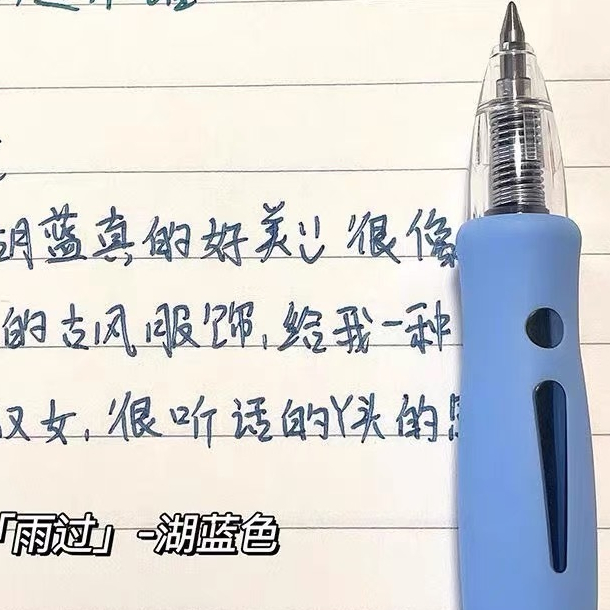 湖蓝真的好美 很像
的古风服饰，给我一种
汉女，很听话的丫头的
「雨过」-湖蓝色